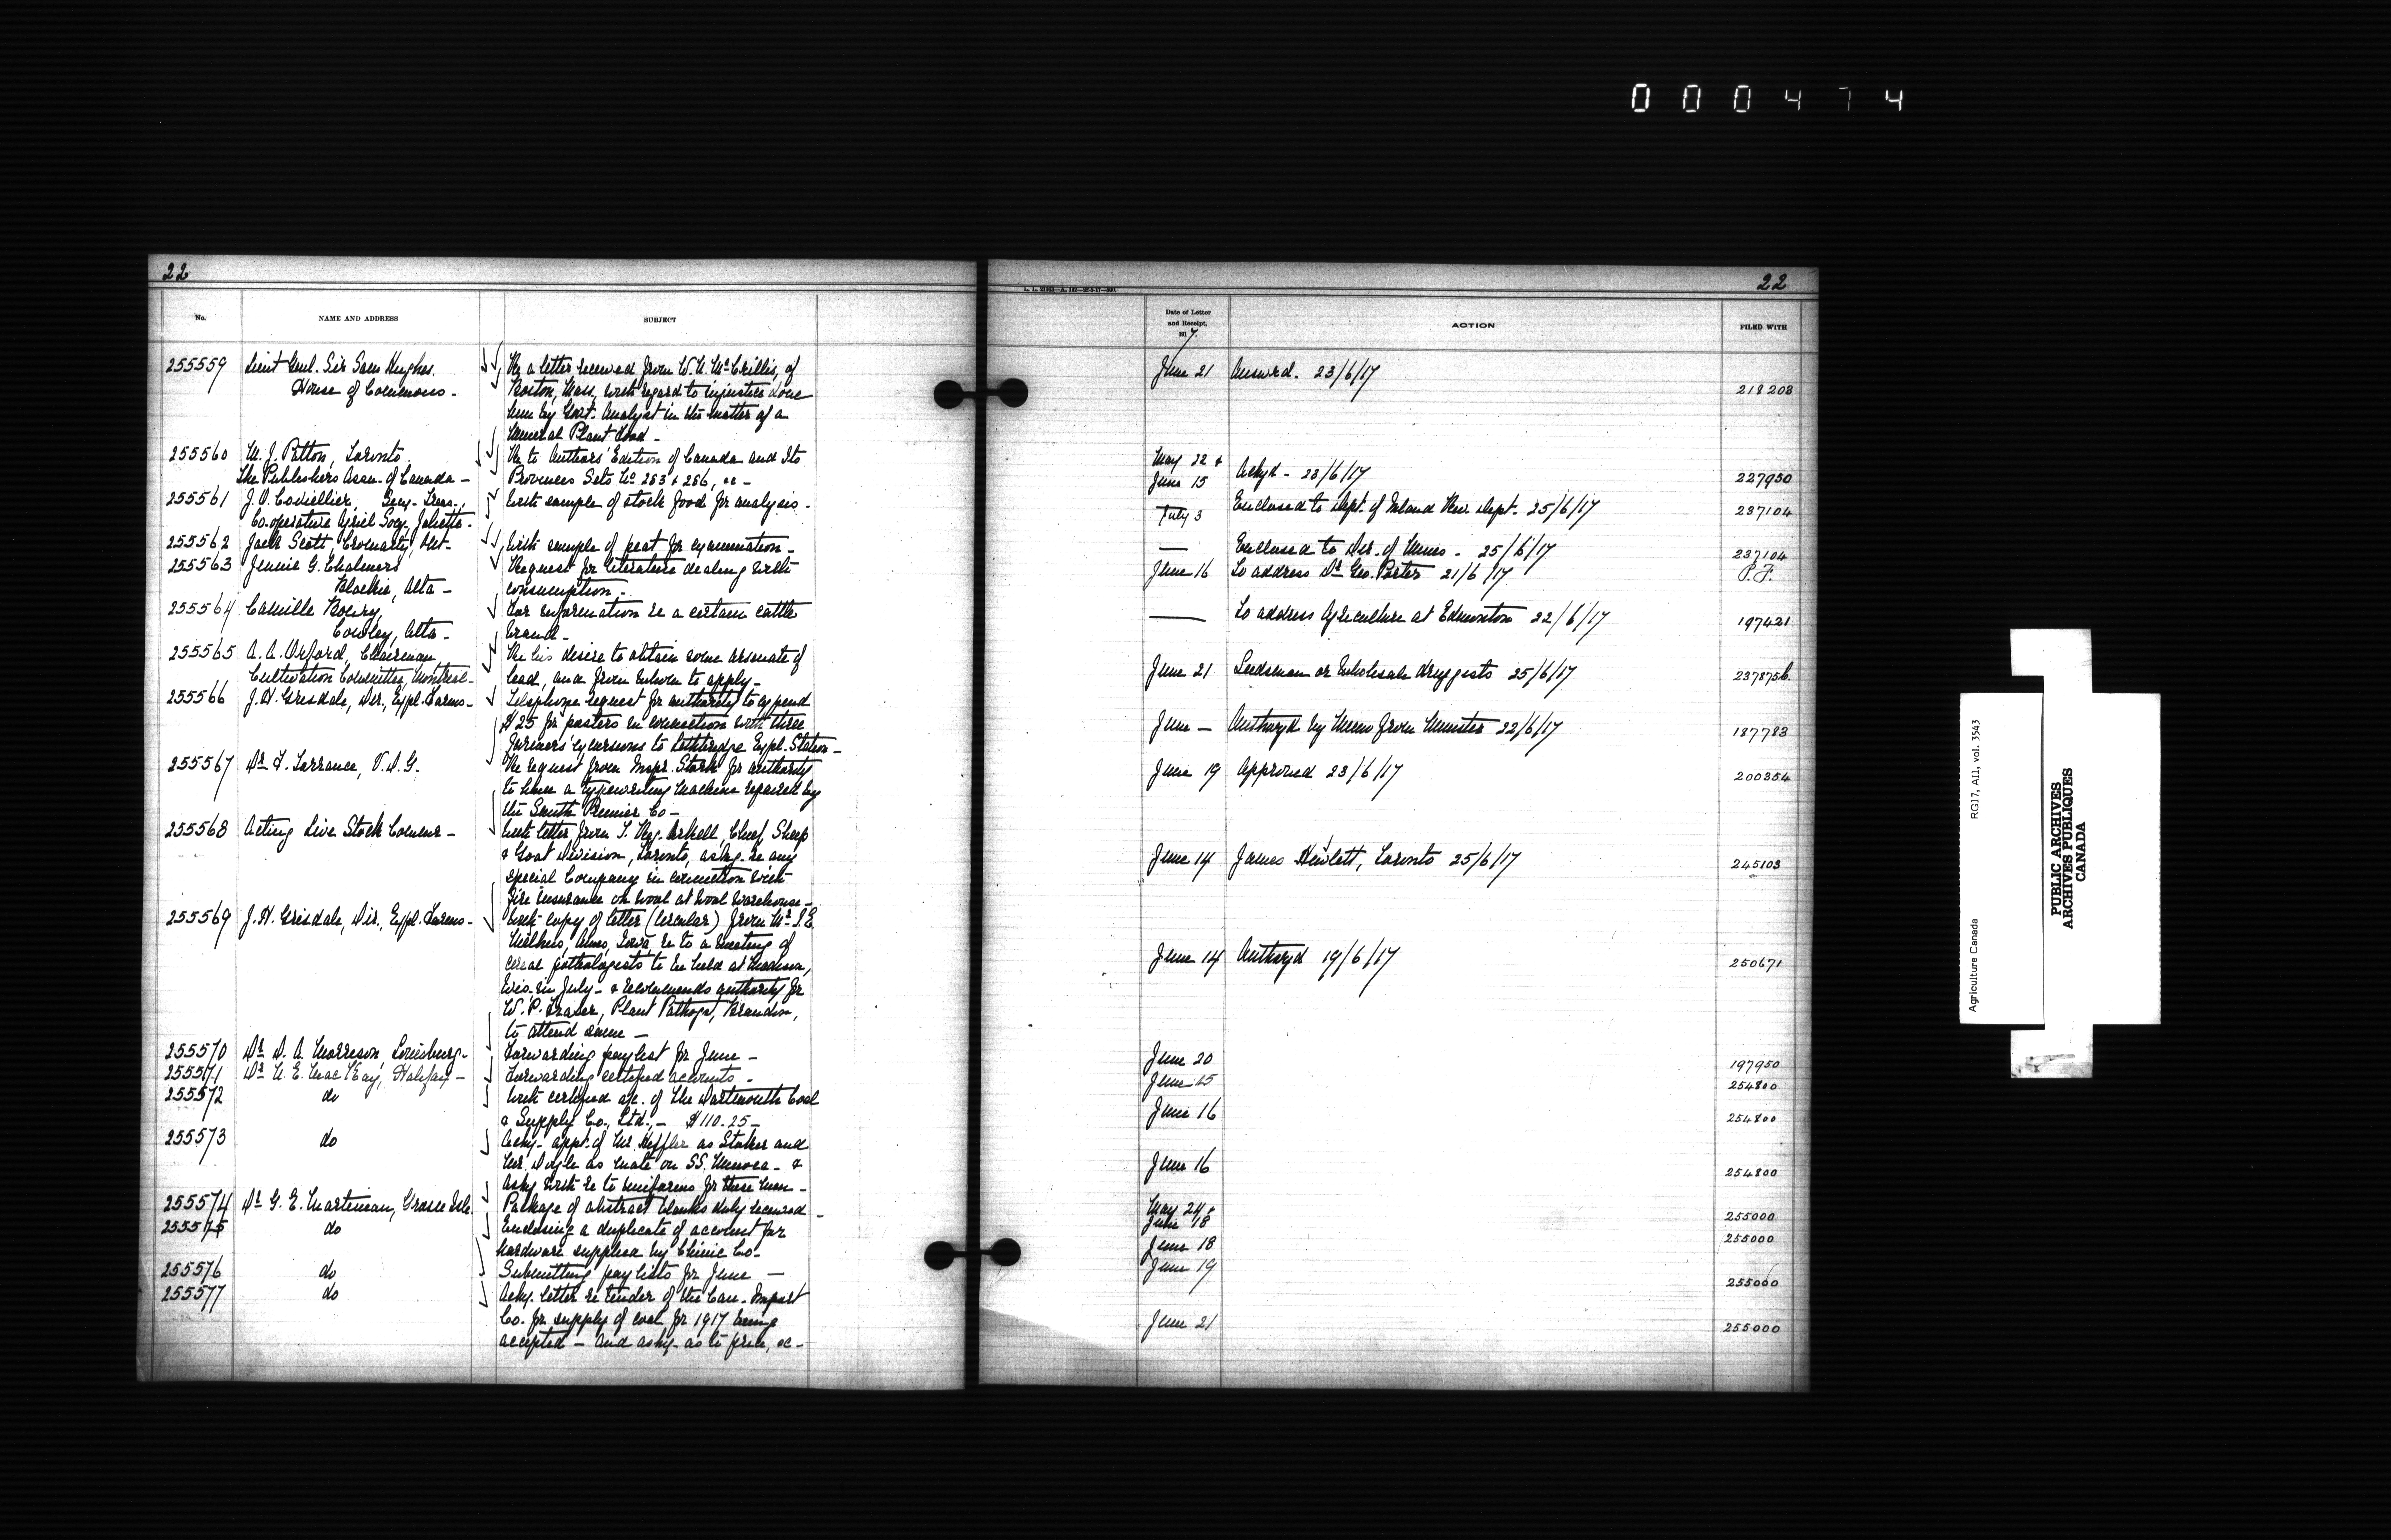 000474
22
No.
NAME AND ADDRESS
SUBJECT
255559 Lieut Genl. Sir Sam Hughes. Re a letter received from W.H. McCrillis, of
House of Commons - Boston, Mass, with regard to injustice done
him by Govt. Analyst in the matter of a
Mineral Plant Food -
255560 M. J. Patton, Toronto. Re to Authors' Edition of Canada and Its
The Publishers Assn. of Canada - Provinces Sets No 253 & 256, &c -
255561 J. O. Secy-Treas., With sample of stock food for analysis.
Co.operative Agricl Socy, Joliette. -
255562 Jack Scott, Cromarty, Ont - With sample of peat for examination -
255563 Jennie G. Chalmers Request for literature dealing with
Blackie, Alta - consumption. -
255564 Camille For information re a certain cattle
Cowley, Alta - brand -
255565 A. A. Oxford, Chairman Re his desire to obtain some arsenate of
Cultivation Committee, Montreal - lead, and from whom to apply -
255566 J. H. Grisdale, Dir., Expl. Farms - Telephone request for authority to expend
$25 for posters in connection with three
farmers' excursions to Lethbridge Expl. Station -
255567 Dr F. Torrance, V.D.G. Re request from Inspr. Stork for authority
to have a typewriting machine repaired by
the Smith Premier Co -
255568 Acting Live Stock Commr - With letter from T. Reg. Arkell, Chief, Sheep
& Goat Division, Toronto, askg. re any
special Company in connection with
fire insurance on wool at wool warehouse -
255569 J. H. Grisdale, Dir., Expl. Farms - With copy of letter (circular) from Mr I.E.
Melhus, Ames, Iowa, re to a meeting of
cereal pathologists to be held at Madison,
Wis. in July - & recommends authority for
W. P. Fraser, Plant Pathogt, Brandon,
to attend same -
255570 Dr D. A. Morrison, Louisburg - Forwarding paylist for June -
255571 Dr N. E. MacKay, Halifax - Forwarding certified accounts -
255572 do With certified a/c. of The Dartmouth Coal
& Supply Co., Ltd., - $110.25 -
255573 do Ackg. appt. of Mr. Heffler as Stoker and
Mr. Doyle as mate on SS. - &
Askg with re to uniforms for these men -
255574 Dr G. E. Martineau, Grosse Isle. Package of abstract blanks duly received -
255575 do Enclosing a duplicate of account for
hardware supplied by Chinic Co -
255576 do Submitting paylists for June -
255577 do Ackg. letter re tender of the Can. Import
Co. for supply of coal for 1917 being
accepted - and askg. as to price, &c -
22
Date of Letter
and Receipt,
1917.
ACTION
FILED WITH
June 21 Answrd. 23/6/17 218208
May 22 &
June 15 Ackgd - 23/6/17 227950
July 3 Enclosed to Dept. of Inland Rev Dept. 25/6/17 237104
— Enclosed to Dir. of Mines - 25/6/17 237104
June 16 To address Dr Geo. Porter 21/6/17 P.F.
— To address Agriculture at Edmonton 22/6/17 197421
June 21 Seedsman or wholesale druggists 25/6/17 237875b.
June — Authorzd by Memo from Minister 22/6/17 187783
June 19 Approved 23/6/17 200354
June 14 James Hewlett, Toronto 25/6/17 245103
June 14 Authorzd 19/6/17 250671
June 20 197950
June 15 254800
June 16 254800
June 16 254800
May 24 &
June 18 255000
June 18 255000
June 19 255000
June 21 255000
Agriculture Canada RG17, A11, vol. 3543
PUBLIC ARCHIVES
ARCHIVES PUBLIQUES
CANADA